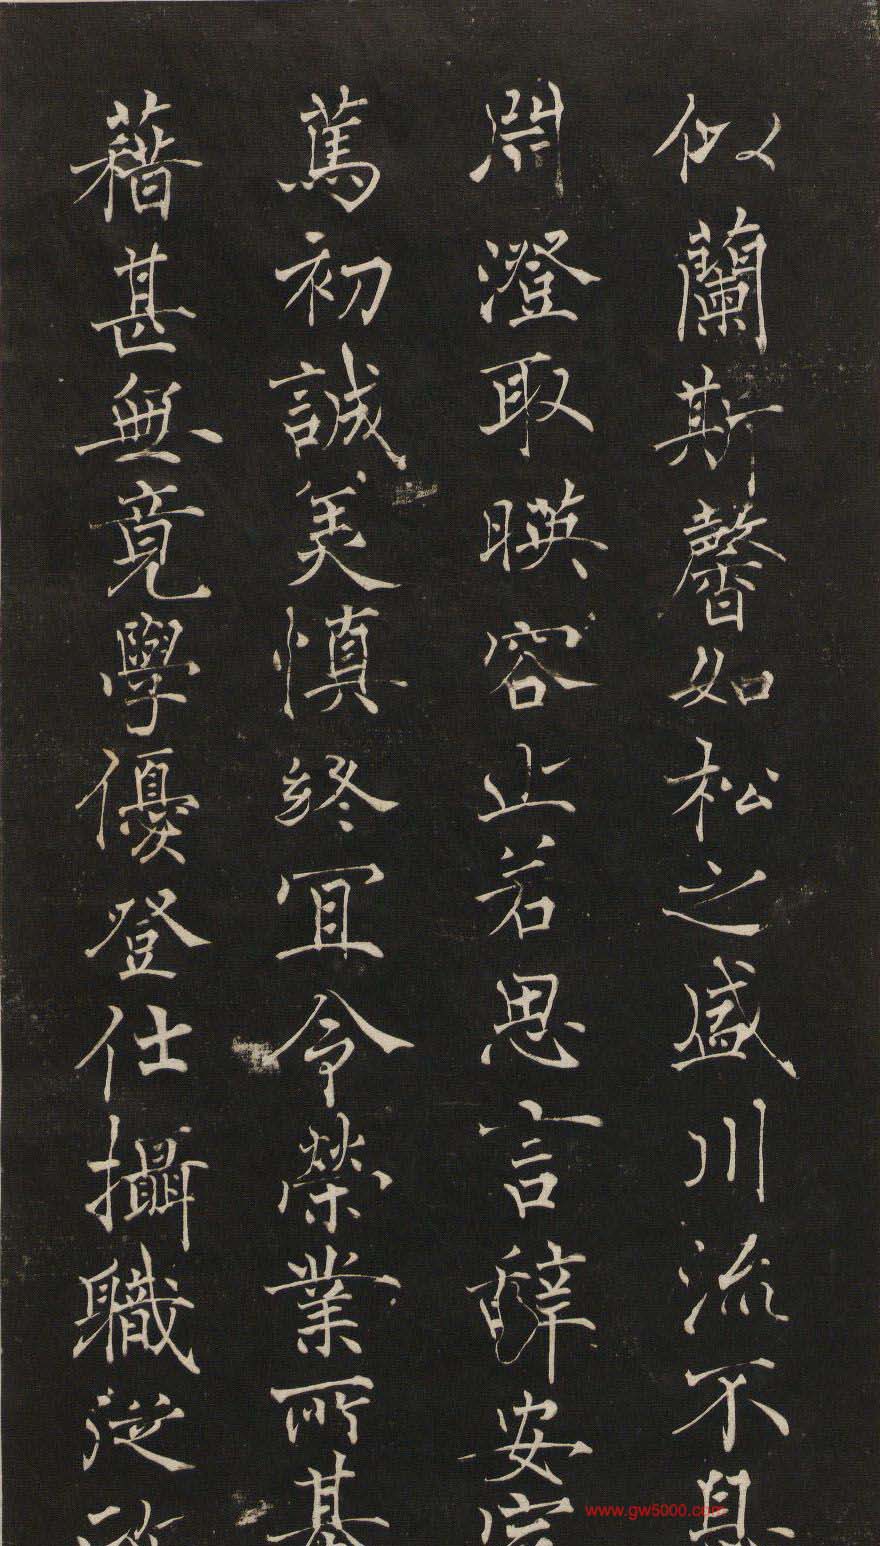 似蘭斯馨如松之盛川流不息
淵澄取暎容止若思言辭安定
篤初誠美慎終宜令榮業所基
藉甚無竟學優登仕攝職從政
www.gw5000.com